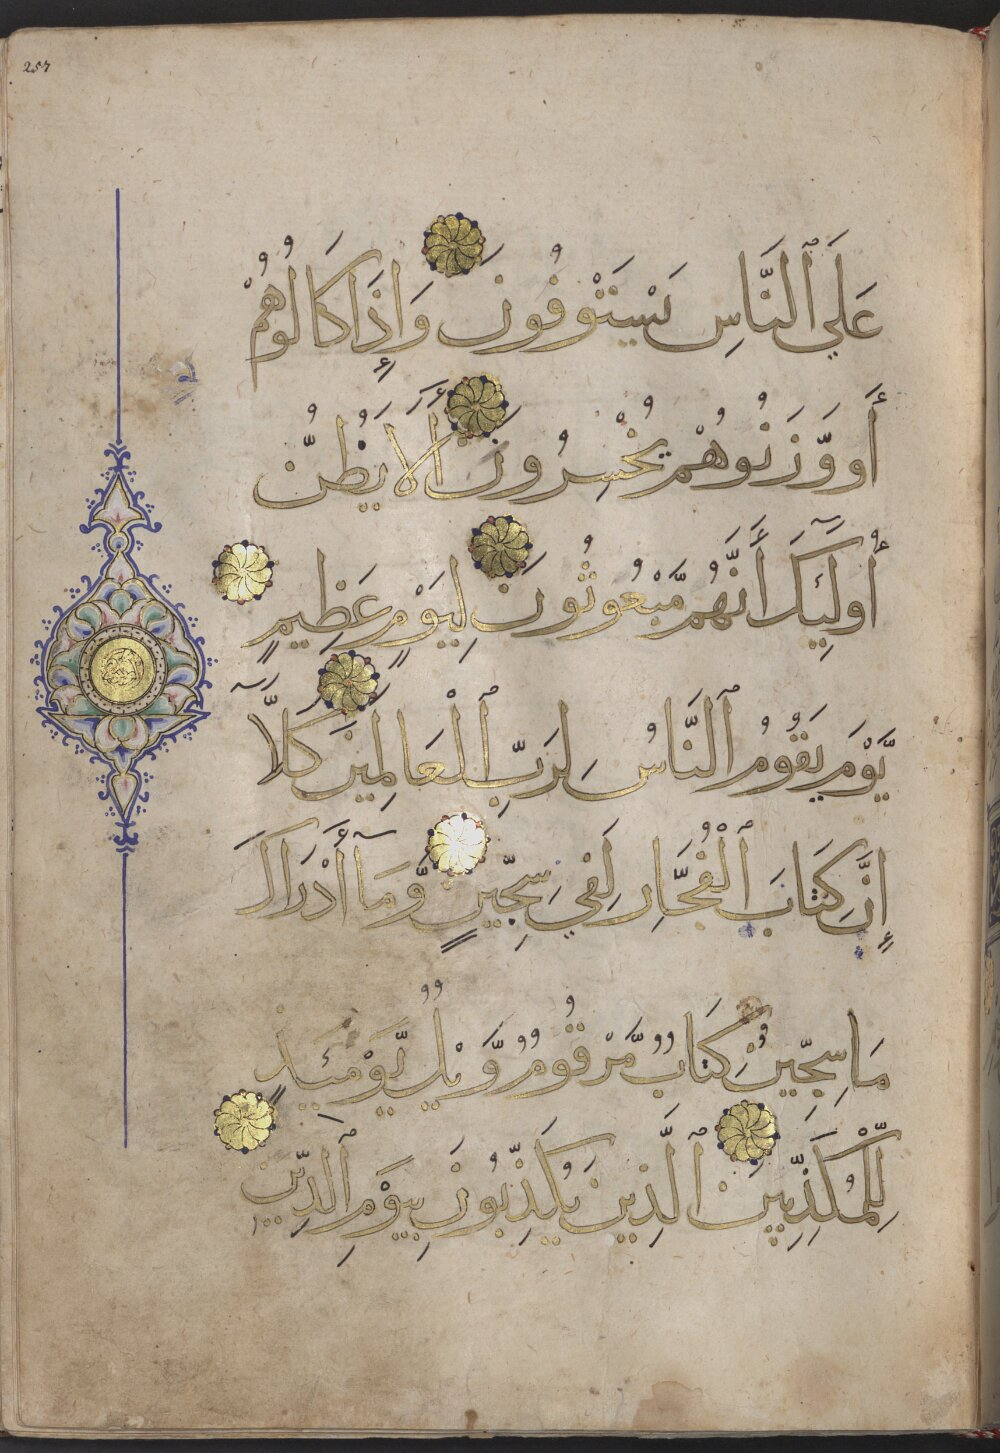 257
عَلَى ٱلنَّاسِ يَسْتَوْفُونَ وَإِذَا كَالُوهُمْ
أَو وَّزَنُوهُمْ يُخْسِرُونَ أَلَا يَظُنُّ
أُولَٰئِكَ أَنَّهُم مَّبْعُوثُونَ لِيَوْمٍ عَظِيمٍ
يَّوْمَ يَقُومُ ٱلنَّاسُ لِرَبِّ ٱلْعَالَمِينَ كَلَّآ
إِنَّ كِتَابَ ٱلْفُجَّارِ لَفِي سِجِّينٍ وَّمَآ أَدْرَاكَ
مَا سِجِّينٌ كِتَابٌ مَّرْقُومٌ وَّيْلٌ يَّوْمَئِذٍ
لِّلْمُكَذِّبِينَ ٱلَّذِينَ يُكَذِّبُونَ بِيَوْمِ ٱلدِّينِ